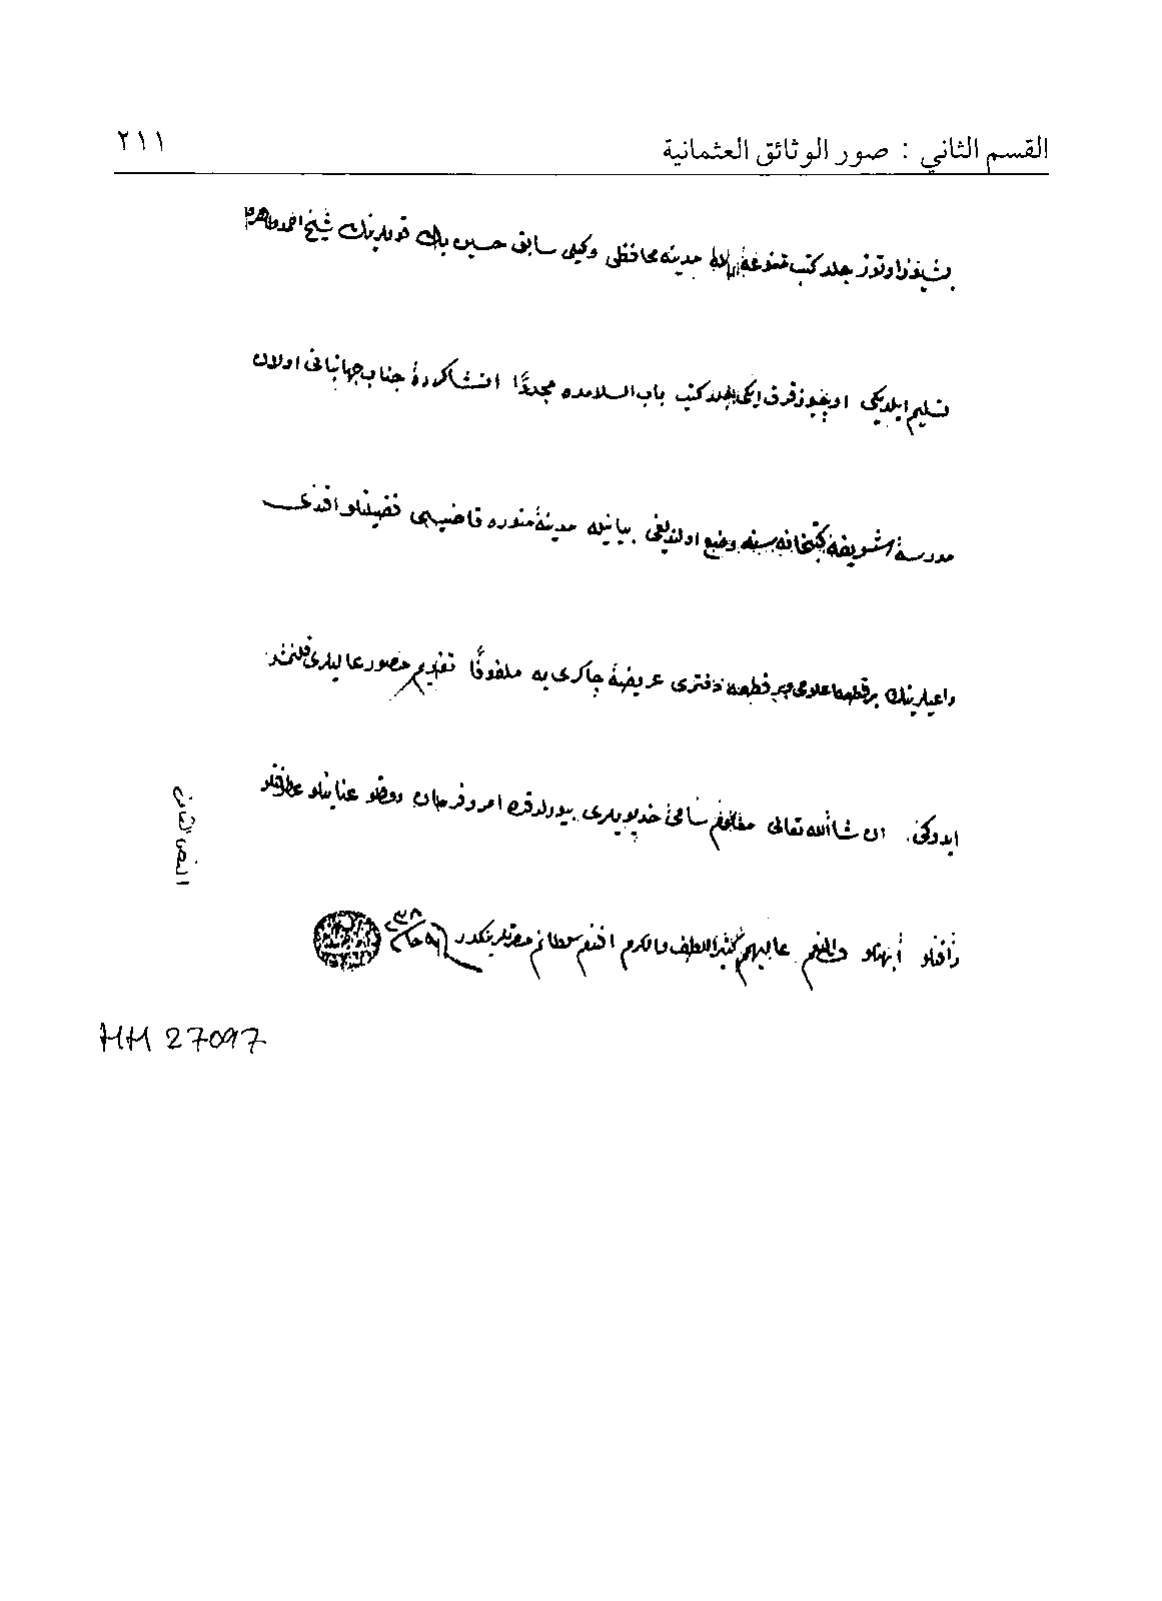 القسم الثاني : صور الوثائق العثمانية
٢١١
بشيوز اوتوز جلد كتب متنوعۀ ايله مدينه محافظى وكيلى سابق حسين بك قوللرينك شيخ احمد طاهره
تسليم ايلديكى اوچيوز قرق ايكى جلد كتب باب السلامده مجددًا انشاكردۀ جناب جهانبانى اولان
مدرسۀ شريفه كتبخانه سنه وضع اولنديغى بيانيله مدينۀ منوره قاضيسى فضيلتلو افندى
داعيلرينك بر قطعه اعلامى وبر قطعه دفترى عريضۀ چاكرى يه ملفوفًا تقديم حضور عاليلرى قلنمشدر
ايدوكى ان شاالله تعالى معلوم سامئ خديويلرى بيورلدقده امر وفرمان دولتلو عنايتلو عطوفتلو
رأفتلو أبهتلو ولى النعم عالي الهمم كثير اللطف والكرم افندم سلطانم حضرتلرينكدر
النص الثانى
HH 27097